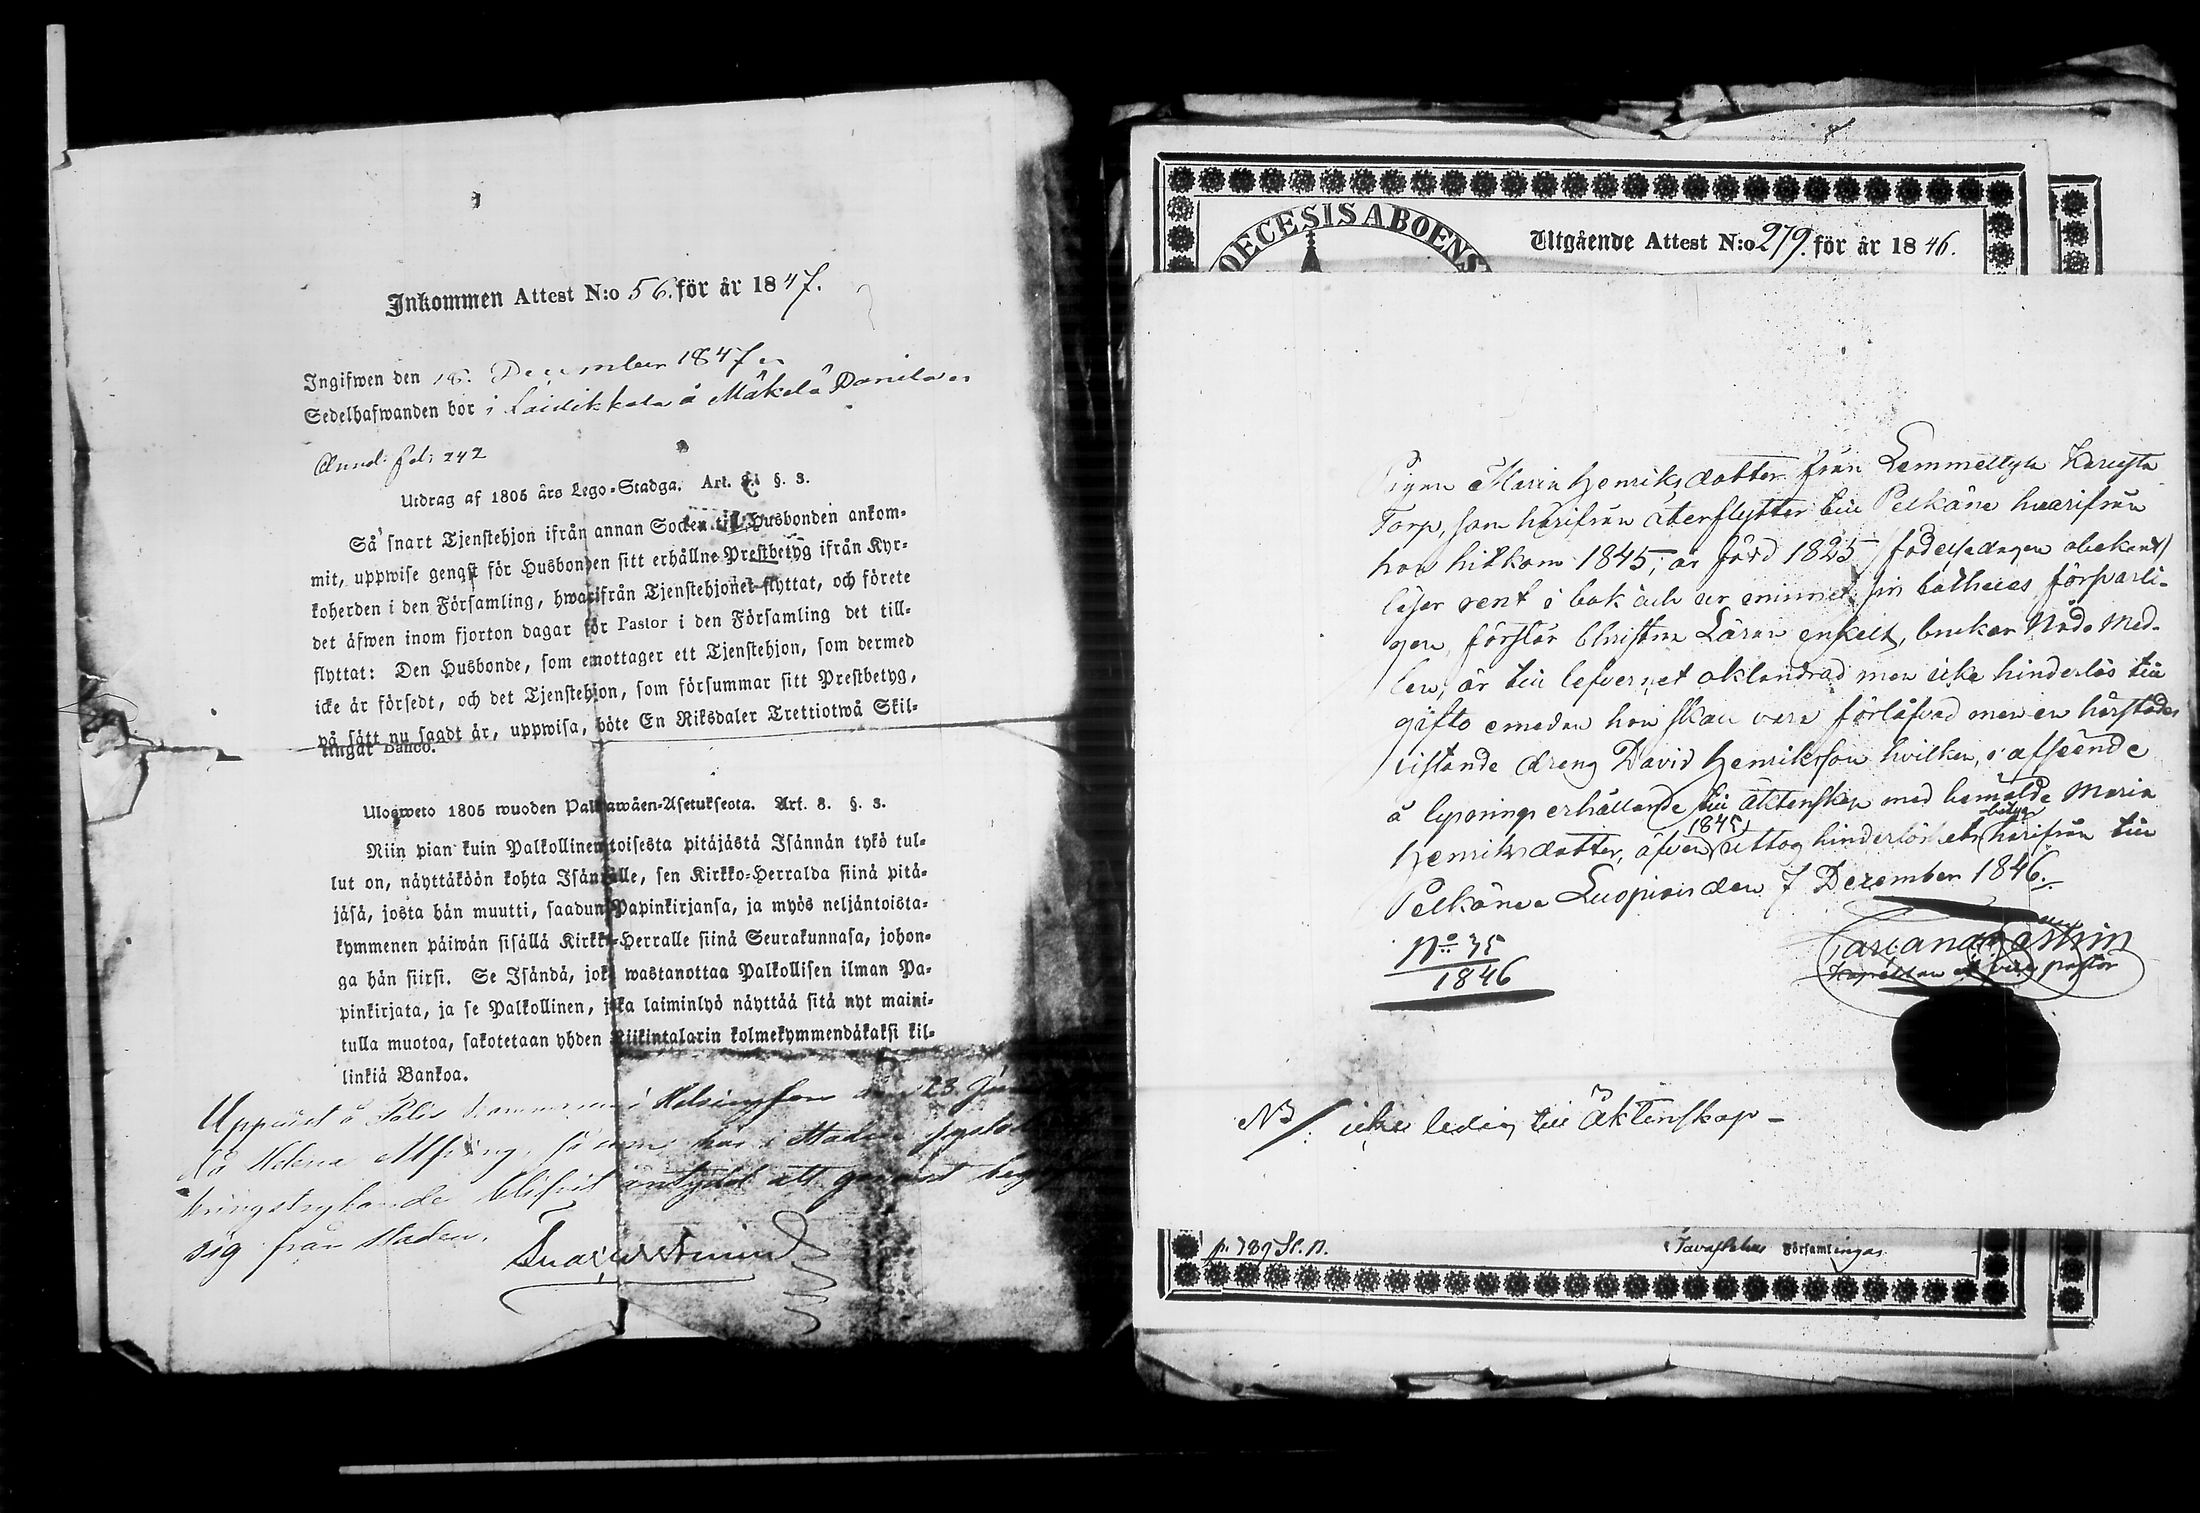 Inkommen Attest N:o 56. för år 1847.
Ingifwen den 18. December 1847
Sedelhafwanden bor i Laidikkala å Mäkelä Danila
Annot: fol: 242
Utdrag af 1805 års Lego-Stadga. Art. 8. §. 3.
Så snart Tjenstehjon ifrån annan Socken till Husbonden ankom-
mit, uppwise genast för Husbonden sitt erhållne Prestbetyg ifrån Kyr-
koherden i den Församling, hwarifrån Tjenstehjonet flyttat, och förete
det äfwen inom fjorton dagar för Pastor i den Församling det till-
flyttat: Den Husbonde, som emottager ett Tjenstehjon, som dermed
icke är försedt, och det Tjenstehjon, som försummar sitt Prestbetyg,
på sätt nu sagdt är, uppwisa, böte En Riksdaler Trettiotwå Skil-
lingar Banco.
Ulosweto 1805 wuoden Palkawäen-Asetuksesta. Art. 8. §. 3.
Niin pian kuin Palkollinen toisesta pitäjästä Isännän tykö tul-
lut on, näyttäköön kohta Isännälle, sen Kirkko-Herralda siinä pitä-
jäsä, josta hän muutti, saadun Papinkirjansa, ja myös neljäntoista-
kymmenen päiwän sisällä Kirkko-Herralle siinä Seurakunnasa, johon-
ga hän siirsi. Se Isändä, joka wastanottaa Palkollisen ilman Pa-
pinkirjata, ja se Palkollinen, joka laiminlyö näyttää sitä nyt maini-
tulla muotoa, sakotetaan yhden Riikintalarin kolmekymmendäkaksi kil-
linkiä Bankoa.
Uppvist å Polis Kammaren i Helsingfors den 23 Jun
då Helena Alfving, såsom här i Staden sysslolös
kringstrykande blifvit antydd att genast begif
sig från Staden.
DIOECESIS ABOENS
Utgående Attest N:o 279. för år 1846.
Pigan Maria Henriksdotter från Lemmettylä
Torp, som härifrån återflyttar till Pelkäne hvarifrån
hon hitkom 1845, är född 1825 (födelsedagen obekant)
läser rent i bok och ur minnet sin katheces förspasli-
gen, förstår Christna Läran enkelt, brukar Nåde Med-
len, är till lefvernet oklandrad men icke hinderlös till
gifto emedan hon skall vara förlåfvad men en härstädes
vistande dreng David Henriksson hvilken, i afseende
å lysnings erhållande till äktenskap med bemälde Maria
Henriksdotter, äfven 1845 uttog hinderlöshets betyg härifrån till
Pelkäne. Luopiois den 7 Dezember 1846.
No 35
1846
Kapellan et vice pastor
NB/: icke ledig till Äktenskap –
p. 789 St. N.
Tavastehus Församlingar